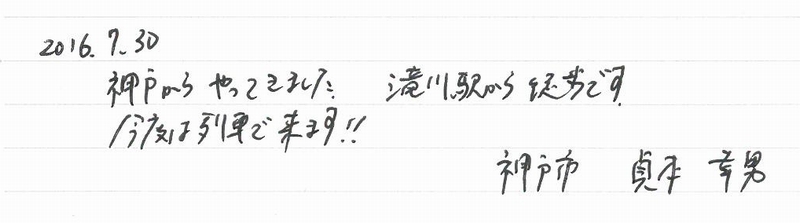 2016.7.30
神戸からやってきました 滝川駅から徒歩です
今度は列車で来ます!!
神戸市 貞本 幸男